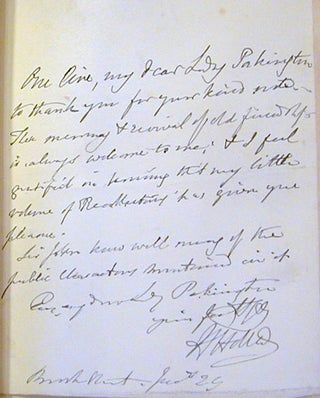 One line, my dear Lady Pakington
to thank you for your kind note -
The memory & revival of old friendships
is always welcome to me; & I feel
gratified in learning that my little
volume of Recollections has given you
pleasure.
Sir John knew well many of the
public characters mentioned in it
Ever, my dear Lady Pakington
yours faithfully
H Holland
Brook Street - 24